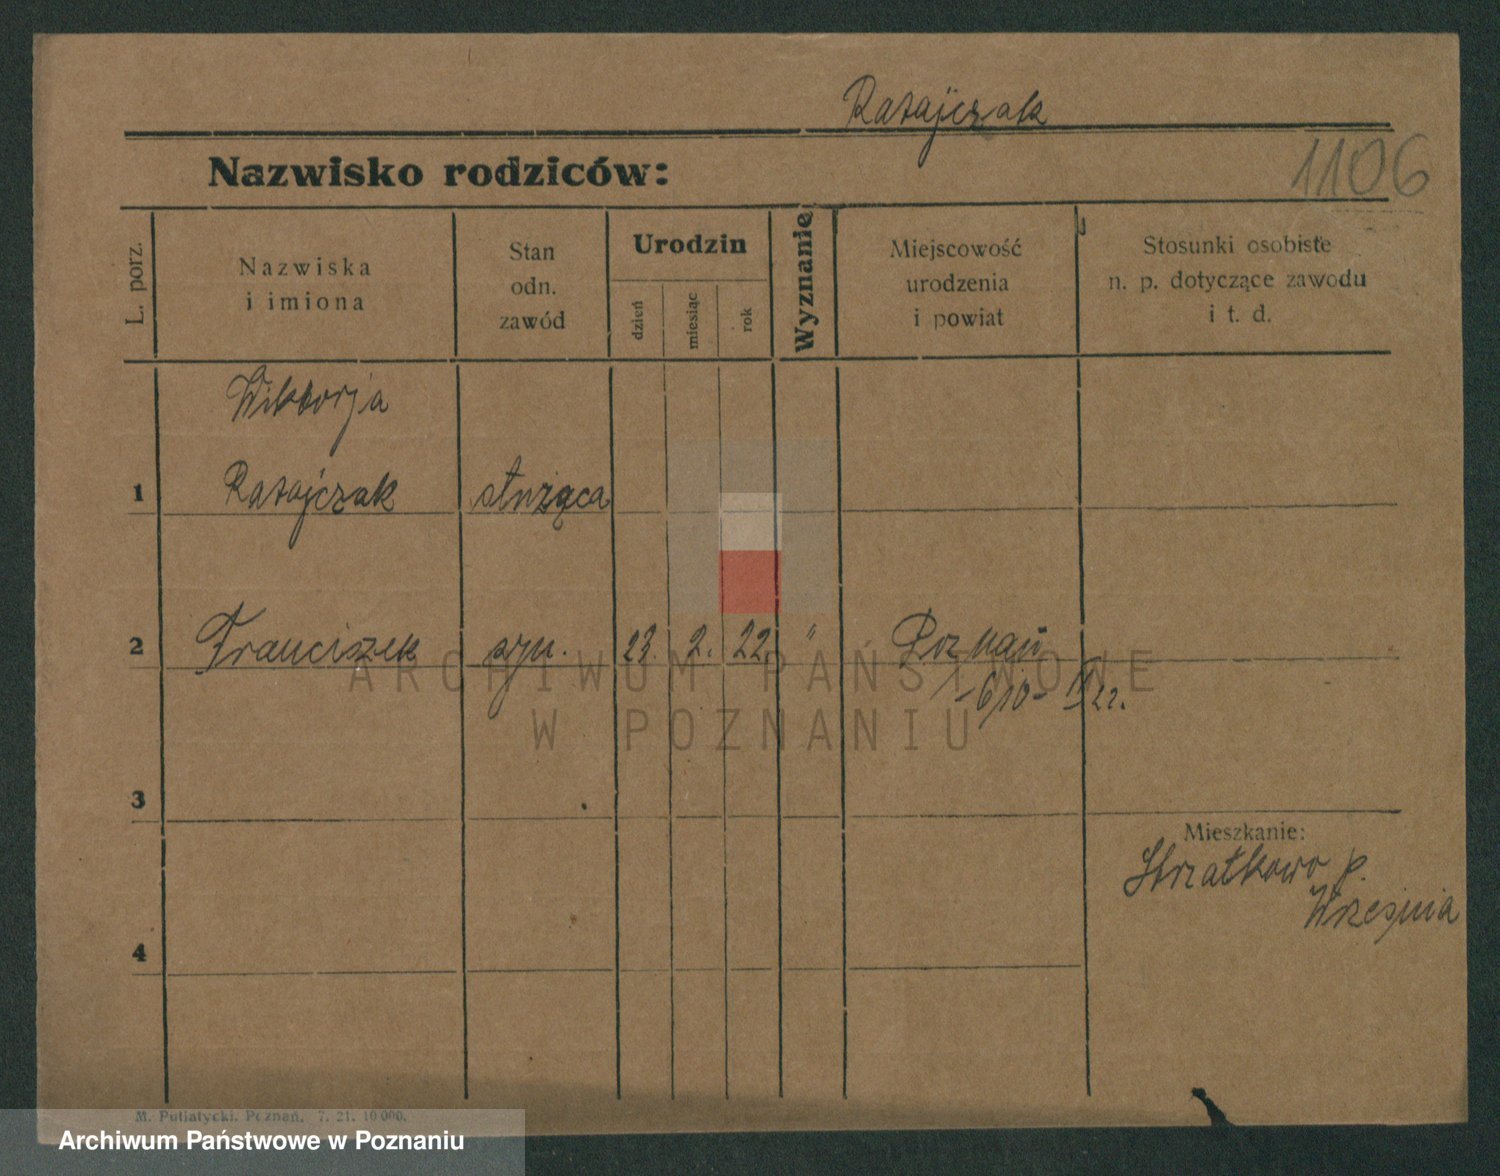 Ratajczak
Nazwisko rodziców:
1106
L. porz.
Nazwiska
i imiona
Stan
odn.
zawód
Urodzin
dzień
miesiąc
rok
Wyznanie
Miejscowość
urodzenia
i powiat
Stosunki osobiste
n. p. dotyczące zawodu
i t. d.
Wiktorja
1 Ratajczak służąca
2 Franciszek syn. 23. 2. 22. " Poznań
3
Mieszkanie:
Strzałkowo p.
Września
4
ARCHIWUM PAŃSTWOWE
W POZNANIU
M. Putiatycki, Poznań, 7. 21. 10 000.
Archiwum Państwowe w Poznaniu